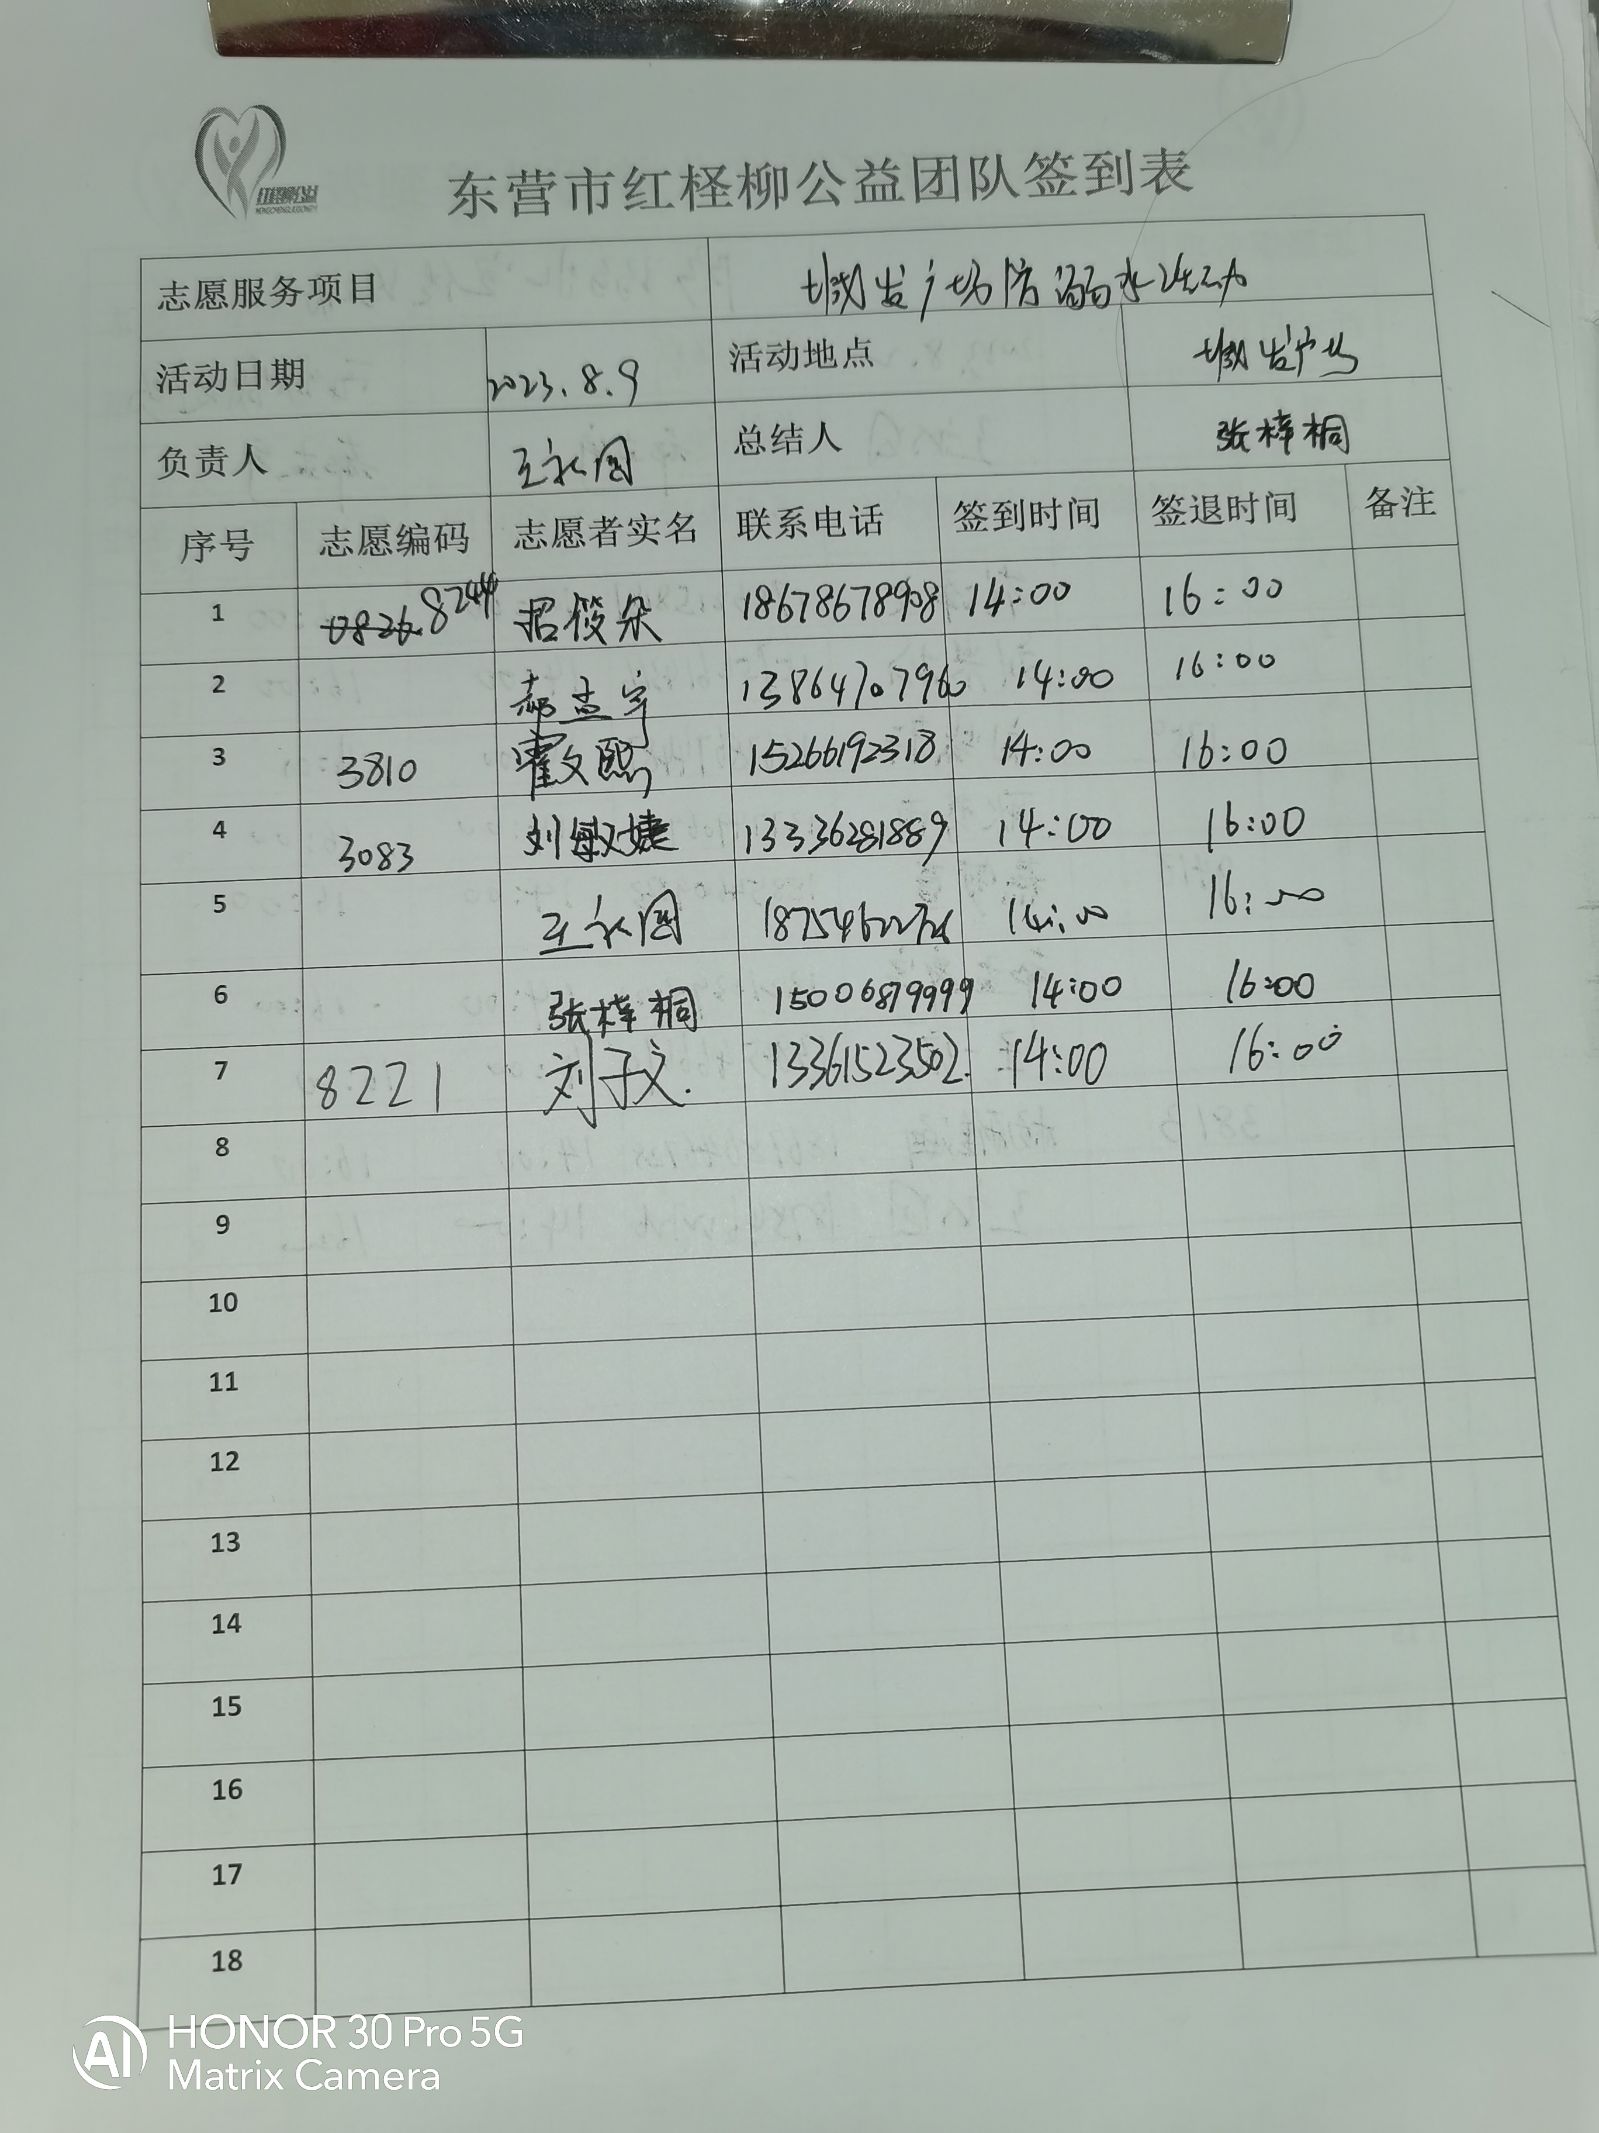 东营市红柽柳公益团队签到表
志愿服务项目 城发广场防溺水活动
活动日期 2023.8.9 活动地点 城发广场
负责人 王永国 总结人 张梓桐
序号 志愿编码 志愿者实名 联系电话 签到时间 签退时间 备注
1 0826 8244 招筱朵 18678678908 14:00 16:00
2 郝孟宇 13864707960 14:00 16:00
3 3810 霍文熙 15266192318 14:00 16:00
4 3083 刘敏婕 13336281889 14:00 16:00
5 王永国 14:00 16:00
6 张梓桐 15006879999 14:00 16:00
7 8221 刘子文. 13361523502. 14:00 16:00
8
9
10
11
12
13
14
15
16
17
18
AI HONOR 30 Pro 5G
Matrix Camera